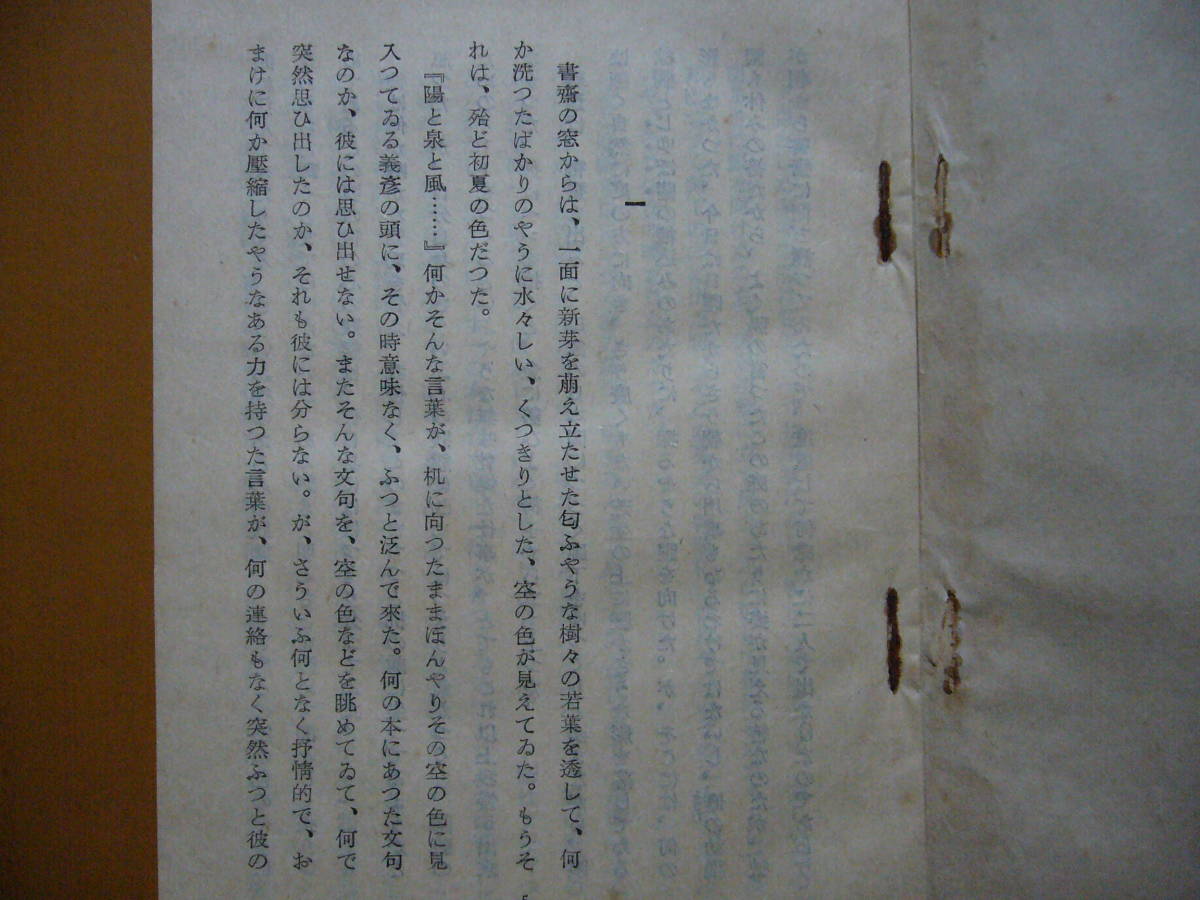 一
書齋の窓からは、一面に新芽を萠え立たせた匂ふやうな樹々の若葉を透して、何
か洗つたばかりのやうに水々しい、くつきりとした、空の色が見えてゐた。もうそ
れは、殆ど初夏の色だつた。
『陽と泉と風……』何かそんな言葉が、机に向つたままぼんやりその空の色に見
入つてゐる義彦の頭に、その時意味なく、ふつと泛んで來た。何の本にあつた文句
なのか、彼には思ひ出せない。またそんな文句を、空の色などを眺めてゐて、何で
突然思ひ出したのか、それも彼には分らない。が、さういふ何となく抒情的で、お
まけに何か壓縮したやうなある力を持つた言葉が、何の連絡もなく突然ふつと彼の